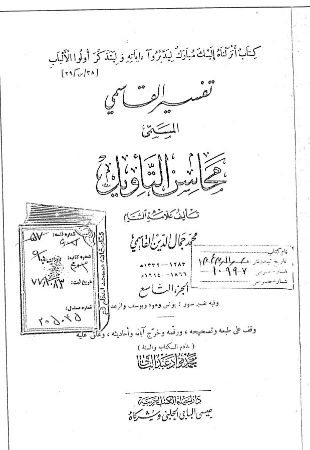 كِتَابٌ أَنْزَلْنَاهُ إِلَيْكَ مُبَارَكٌ لِيَدَّبَّرُوا آيَاتِهِ وَلِيَتَذَكَّرَ أُولُو الْأَلْبَابِ
تفسير القاسمي
المسمى
محاسن التأويل
تأليف علامة الشام
محمد جمال الدين القاسمي
١٢٨٣ - ١٣٢٢ هـ
١٨٦٦ - ١٩١٤ م
الجزء التاسع
وفيه تفسير سور: يونس وهود ويوسف والرعد
وقف على طبعه وتصحيحه، ورقمه وخرّج آياته وأحاديثه، وعلق عليه
خادم الكتاب والسنة
محمد فؤاد عبد الباقي
دار إحياء الكتب العربية
عيسى البابي الحلبي وشركاه
١٠٩٩٢
٢٠٥٠٢٥